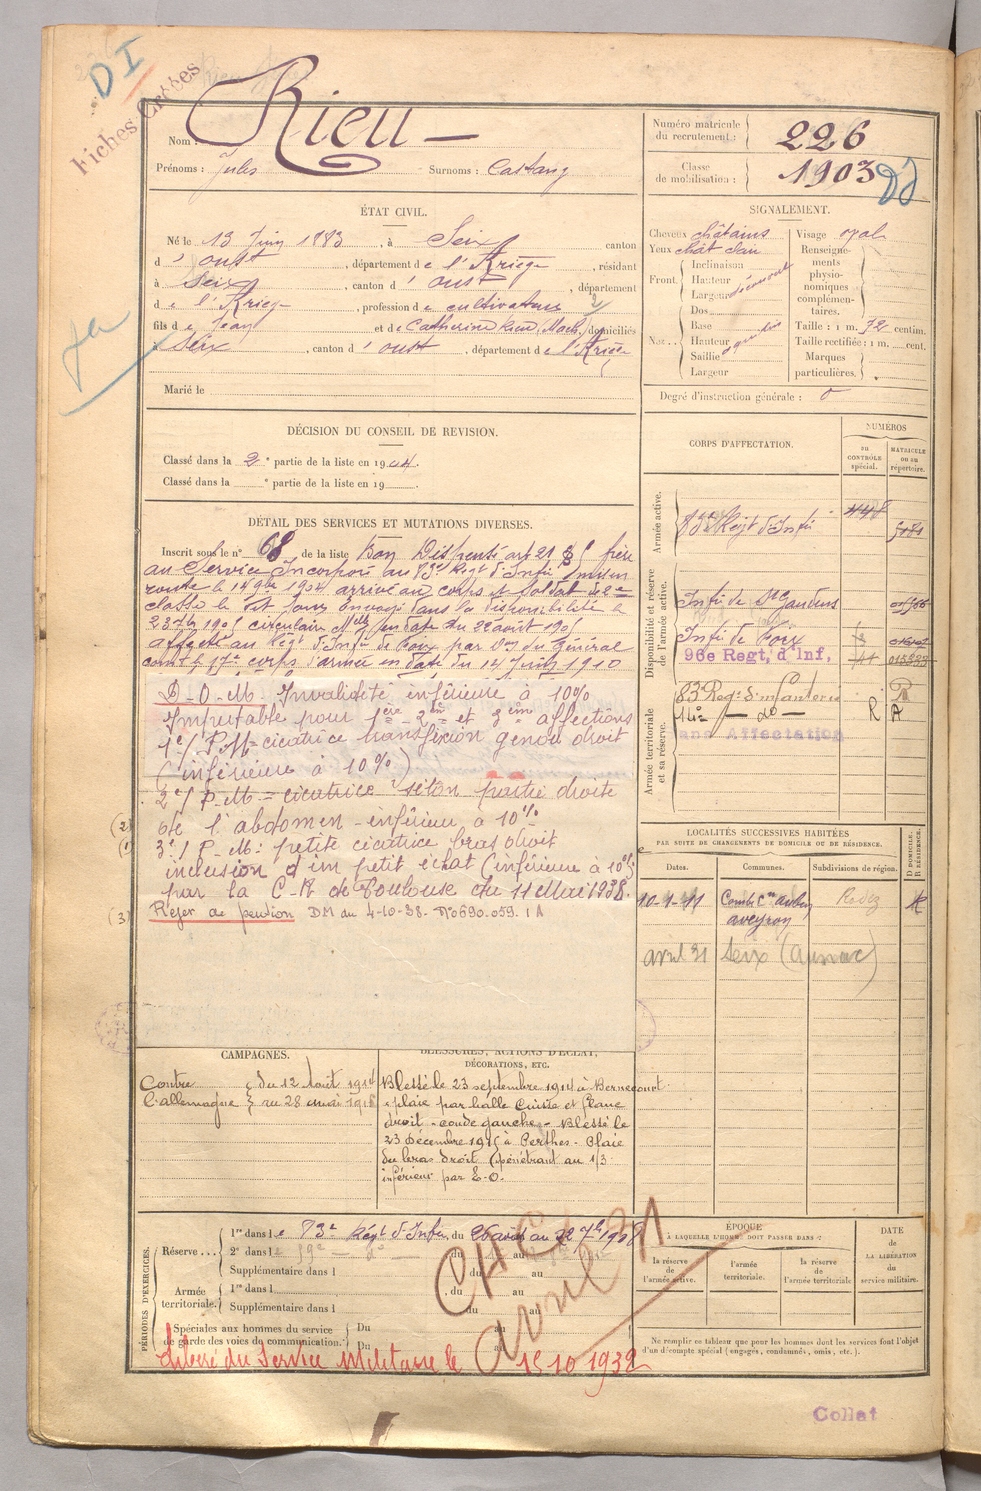 D I
Fiches Créées
Nom : Rieu
Prénoms : Jules Surnoms : Castang
Numéro matricule du recrutement : 226
Classe de mobilisation : 1903
ÉTAT CIVIL.
Né le 13 Juin 1883, à Seix canton
d' oust, département de l'Ariège, résidant
à Seix, canton d' oust, département
de l'Ariège, profession de cultivateur
fils de Jean et de Catherine Rieu, Mach, domiciliés
Seix, canton d' oust, département de l'Ariège
Marié le
SIGNALEMENT.
Cheveux châtains
Yeux chât clair
Front Inclinaison
Hauteur
Largeur découvert
Nez Dos
Base
Hauteur
Saillie
Largeur
Visage oval
Renseignements physionomiques complémentaires.
Taille : 1 m. 72 centim.
Taille rectifiée : 1 m. cent.
Marques particulières.
Degré d'instruction générale : 0
DÉCISION DU CONSEIL DE REVISION.
Classé dans la 2e partie de la liste en 1904.
Classé dans la e partie de la liste en 19 .
CORPS D'AFFECTATION.
NUMÉROS
au CONTRÔLE spécial.
MATRICULE ou au répertoire.
Armée active.
83e Régt d'Infie
Disponibilité et réserve de l'armée active.
Infie de St Gaudens
Infie de Foix
96e Regt, d'Inf,
Armée territoriale et sa réserve.
83e Reg. d'Infanterie
14e — do — R A
ans Affectation
DÉTAIL DES SERVICES ET MUTATIONS DIVERSES.
Inscrit sous le n° 68 de la liste Bon Dispensé art 21 frère
au Service Incorporé au 83e Régt d'Infie mis en
route le 14 9bre 1904 arrivé au corps et soldat de 2e
classe le dit jour envoyé dans la disponibilité le
23 7bre 1905 circulaire Mlle en date du 22 août 1905
affecté au Régt d'Infie de Foix par Don du Général
comt le 17e corps d'armée en date du 14 Juin 1910
D-O-M- Invalidité inférieure à 10%
Imputable pour 1ère - 2ème et 3ème affections
1e/ P.M = cicatrice transfixion genou droit
(inférieure à 10%)
2e/ P-M = cicatrice séton partie droite
de l'abdomen - inférieur à 10%
3e/ P-M : petite cicatrice bras droit
inclusion d'un petit éclat (inférieure à 10%)
par la C-R de Toulouse du 11 Mai 1938.
Rejet de pension DM du 4-10-38. N° 690.059. 1A
(2)
(1)
(3)
LOCALITÉS SUCCESSIVES HABITÉES
PAR SUITE DE CHANGEMENTS DE DOMICILE OU DE RÉSIDENCE.
Dates. Communes. Subdivisions de région. D DOMICILE. R RÉSIDENCE.
10-1-11 Combe Cne aubin aveyron Rodez R
avril 31 Seix
CAMPAGNES.
Contre l'allemagne du 12 août 1914
au 28 mai 1916
BLESSURES, ACTIONS D'ÉCLAT,
DÉCORATIONS, ETC.
Blessé le 23 septembre 1914 à Bernecourt
plaie par balle Cuisse et flanc
droit - coude gauche - Blessé le
23 Décembre 1915 à Perthes - Plaie
du bras droit (pénétrant au 1/3
inférieur par E-O.
PÉRIODES D'EXERCICES.
Réserve... 1re dans le 83e Régt d'Infie, du 26 août au 22 7bre 1908
2e dans le 59e du au
Supplémentaire dans l du au
Armée territoriale. 1re dans l , du au
Supplémentaire dans l du au
Spéciales aux hommes du service de garde des voies de communication. Du au
Du au
Libéré du Service Militaire le 15 10 1932
CHC
avril 31
ÉPOQUE
À LAQUELLE L'HOMME DOIT PASSER DANS :
la réserve de l'armée active. l'armée territoriale. la réserve de l'armée territoriale
DATE DE LA LIBÉRATION du service militaire.
Ne remplir ce tableau que pour les hommes dont les services font l'objet
d'un décompte spécial (engagés, condamnés, omis, etc.).
Collat